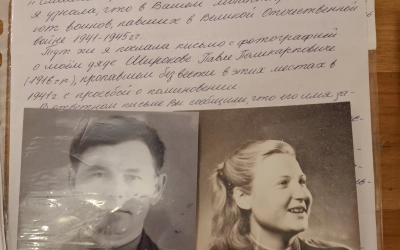 я узнала, что в Вашем
ют воинов, павших в Великой Отечественной
войне 1941-1945 гг.
Тут же я послала письмо с фотографией
о моём дяде Широкове Павле Поликарповиче
(1916 г.р), пропавшем без вести в этих местах в
1941 г с просьбой о поминовении
В ответном письме Вы сообщили, что его имя за-